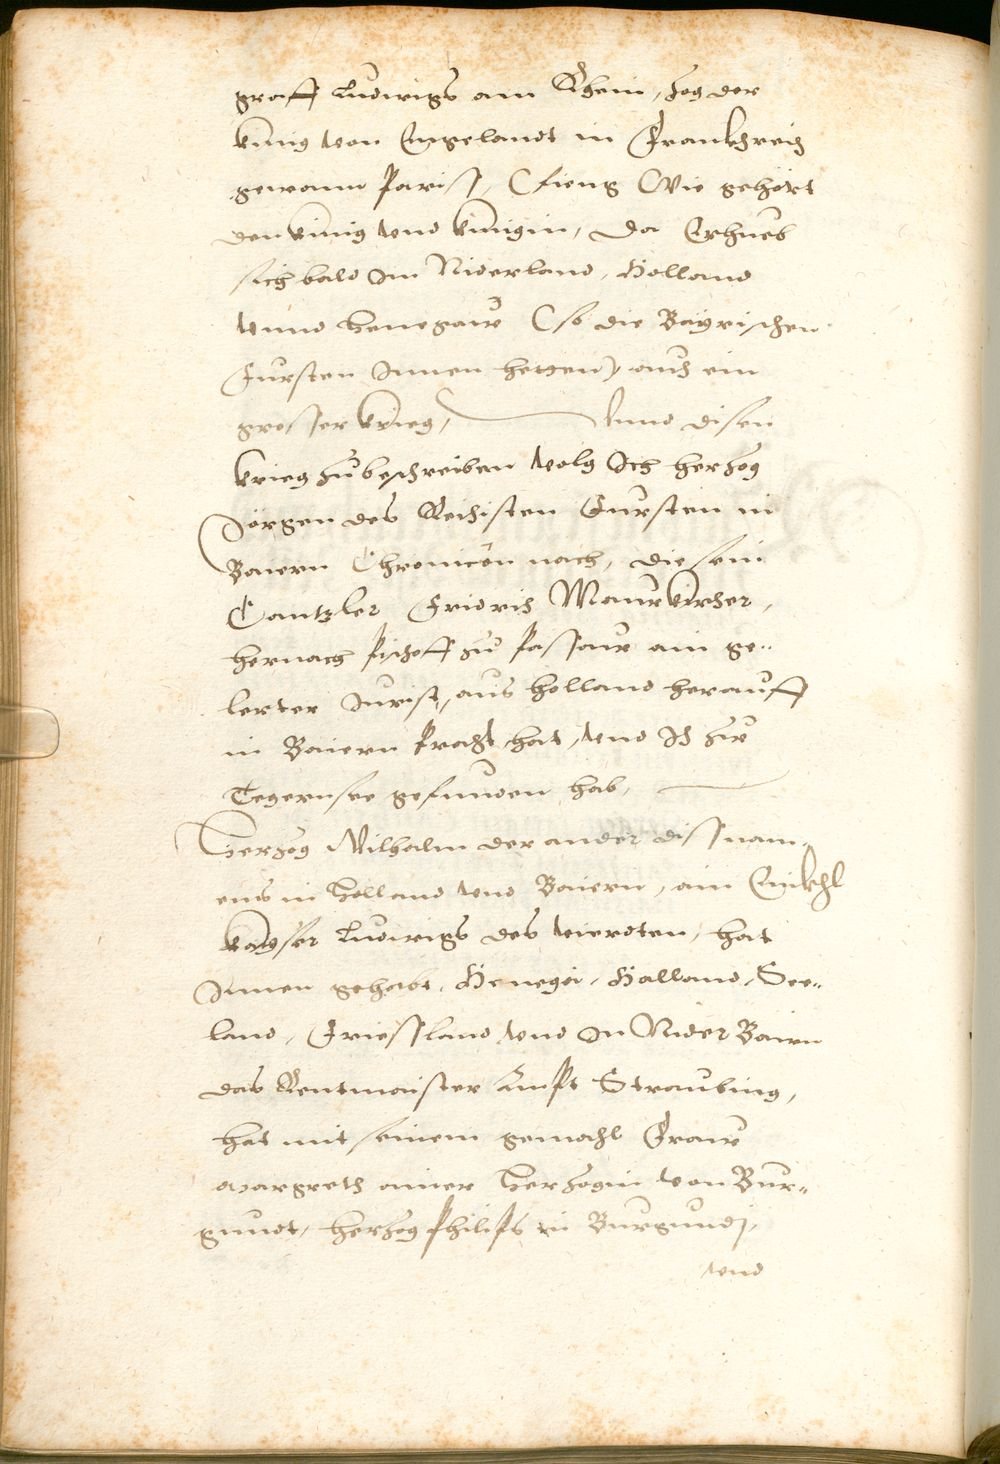 graff Ludwigs am Rhein, zog der
künig von Engelandt in Franckhreich
gewann Pariss, (fieng wie gehört
den künig vnd künigin, da Erhueb
sich bald Im Niderland, Holland
vnnd Henegaw (so die Bayrischen
Fursten Innen hetten) auch ein
grosser krieg, Vnnd disen
krieg zubeschreiben volg Ich herzog
Jörgen des Reichisten Fursten in
Baiern Chronicōn nach, die sein
Cantzler Fridrich Maurkircher,
hernach Pischoff zu Passaw ain ge=
lerter Jurist, aus Holland herauff
in Baiern Pracht hat, vnd Ich zue
Tegernsee gefunden hab,
Herzog Wilhalm der ander diss nam=
ens in Holland vnd Baiern, ain Enickhl
kayser Ludwigs des vierdten, hat
Innen gehabt, Henegöi, Holland, See=
land, Friessland vnd In Nider Bairn
das Rentmaister Ampt Straubing,
hat mit seinem gemahl Fraw
Margreth ainer Herzogin von Bur=
gundt, herzog Philips in Burgundj,
vnd